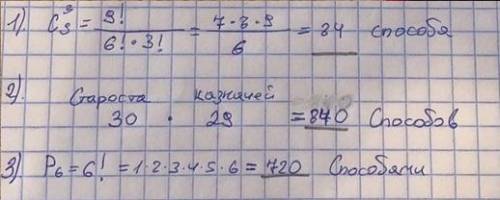 1). C₉³ = 9! / 6! · 3! = 7 · 8 · 9 / 6 = 84 способа
2). Староста казначей
30 · 29 = 870 Способов
3) P₆ = 6! = 1·2·3·4·5·6 = 720 Способами